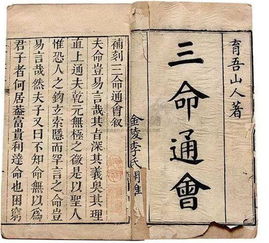 育吾山人著
三命通會
金陵李氏
補刻三命通會叙
夫命豈易言哉其旨深其義奧其理
直上通夫乾元無極之微是以聖人
惟恐人之鈎玄索隱而罕言之命豈
易言哉然夫子又曰不知命無以爲
君子者何居蓋富貴利達命也困窮